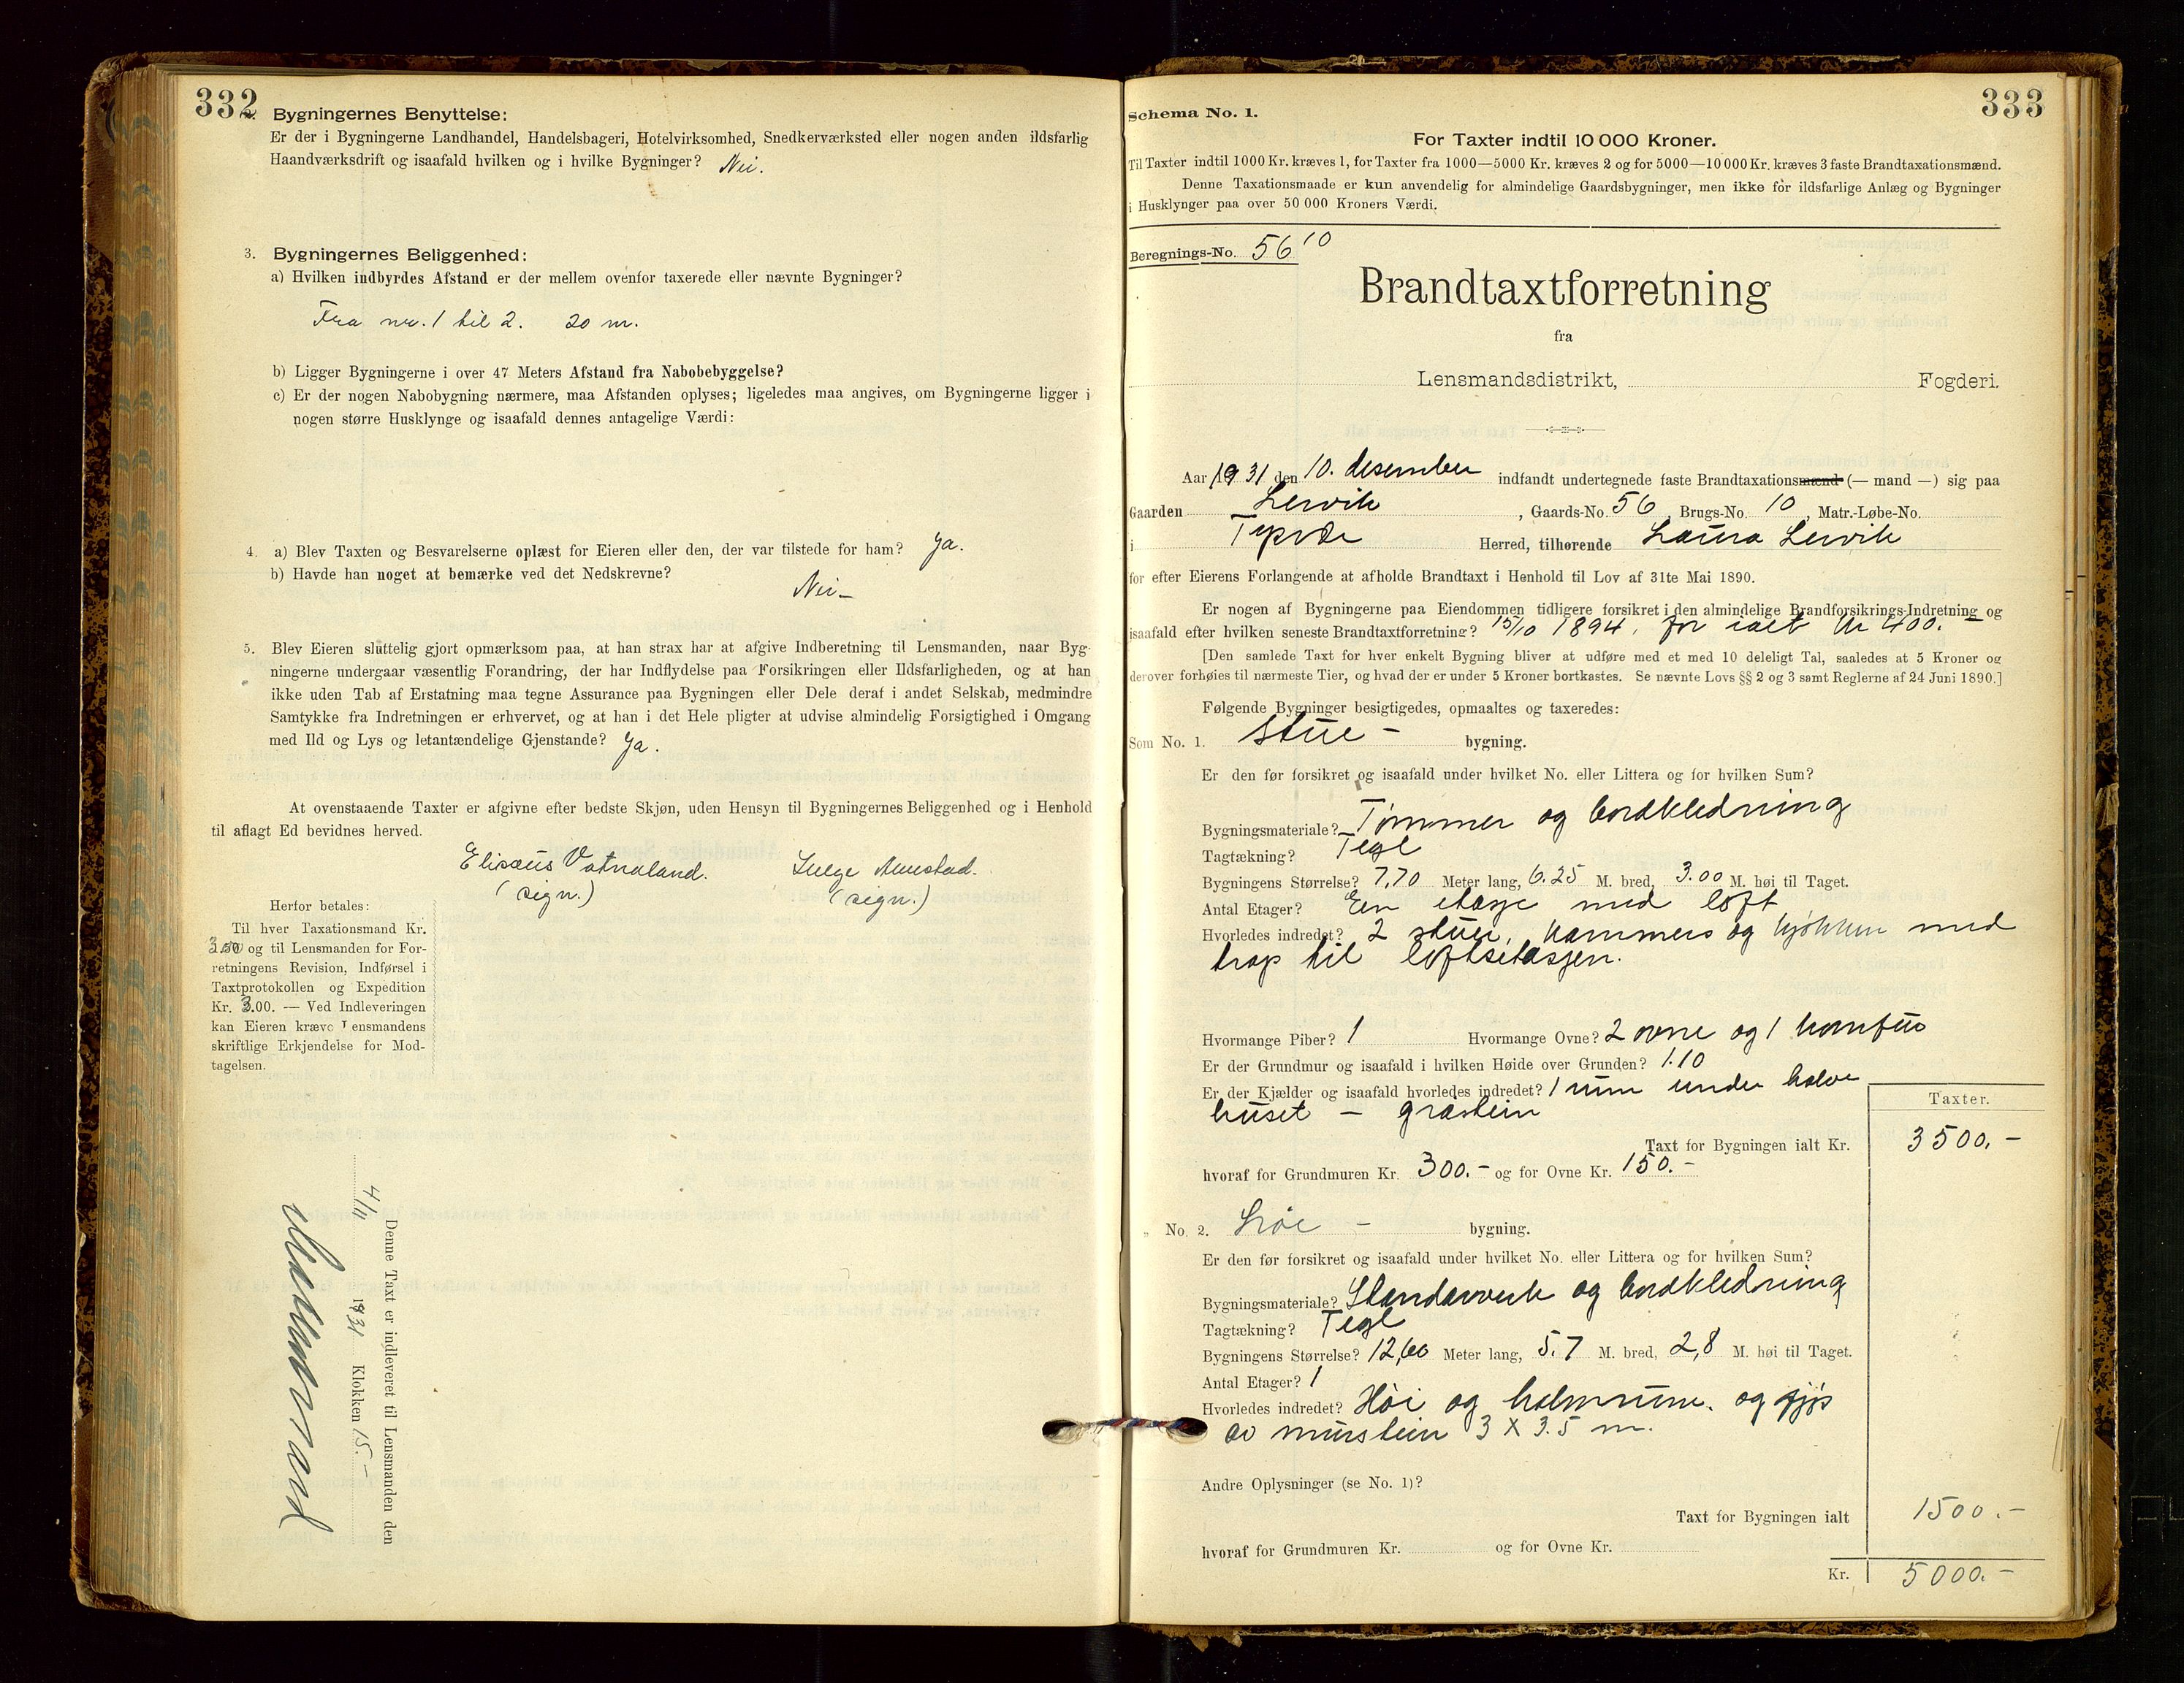 332
2. Bygningernes Benyttelse:
Er der i Bygningerne Landhandel, Handelsbageri, Hotelvirksomhed, Snedkerværksted eller nogen anden ildsfarlig
Haandværksdrift og isaafald hvilken og i hvilke Bygninger? Nei.
3. Bygningernes Beliggenhed:
a) Hvilken indbyrdes Afstand er der mellem ovenfor taxerede eller nævnte Bygninger?
Fra nr. 1 til 2. 20 m.
b) Ligger Bygningerne i over 47 Meters Afstand fra Nabobebyggelse?
c) Er der nogen Nabobygning nærmere, maa Afstanden oplyses; ligeledes maa angives, om Bygningerne ligger i
nogen større Husklynge og isaafald dennes antagelige Værdi:
4. a) Blev Taxten og Besvarelserne oplæst for Eieren eller den, der var tilstede for ham? Ja.
b) Havde han noget at bemærke ved det Nedskrevne?
Nei -
5. Blev Eieren sluttelig gjort opmærksom paa, at han strax har at afgive Indberetning til Lensmanden, naar Byg-
ningerne undergaar væsentlig Forandring, der har Indflydelse paa Forsikringen eller Ildsfarligheden, og at han
ikke uden Tab af Erstatning maa tegne Assurance paa Bygningen eller Dele deraf i andet Selskab, medmindre
Samtykke fra Indretningen er erhvervet, og at han i det Hele pligter at udvise almindelig Forsigtighed i Omgang
med Ild og Lys og letantændelige Gjenstande? Ja.
At ovenstaaende Taxter er afgivne efter bedste Skjøn, uden Hensyn til Bygningernes Beliggenhed og i Henhold
til aflagt Ed bevidnes herved.
Elisæus Vatnaland.
(sign.) (sign.)
Herfor betales:
Til hver Taxationsmand Kr.
3.00 og til Lensmanden for For-
retningens Revision, Indførsel i
Taxtprotokollen og Expedition
Kr. 3.00. — Ved Indleveringen
kan Eieren kræve Lensmandens
skriftlige Erkjendelse for Mod-
tagelsen.
Denne Taxt er indleveret til Lensmanden den
4/11 1931 Klokken 15.-
333
Schema No. 1.
For Taxter indtil 10 000 Kroner.
Til Taxter indtil 1000 Kr. kræves 1, for Taxter fra 1000—5000 Kr. kræves 2 og for 5000—10 000 Kr. kræves 3 faste Brandtaxationsmænd.
Denne Taxationsmaade er kun anvendelig for almindelige Gaardsbygninger, men ikke for ildsfarlige Anlæg og Bygninger
i Husklynger paa over 50 000 Kroners Værdi.
Beregnings-No. 56 10
Brandtaxtforretning
fra
Lensmandsdistrikt, Fogderi.
Aar 1931 den 10. desember indfandt undertegnede faste Brandtaxationsmænd (— mand —) sig paa
Gaarden Lervik, Gaards-No. 56, Brugs-No. 10, Matr.-Løbe-No.
i Tysvær Herred, tilhørende Laura Lervik
for efter Eierens Forlangende at afholde Brandtaxt i Henhold til Lov af 31te Mai 1890.
Er nogen af Bygningerne paa Eiendommen tidligere forsikret i den almindelige Brandforsikrings-Indretning og
isaafald efter hvilken seneste Brandtaxtforretning? 15/10 1894, for ialt kr 400. -
[Den samlede Taxt for hver enkelt Bygning bliver at udføre med et med 10 deleligt Tal, saaledes at 5 Kroner og
derover forhøies til nærmeste Tier, og hvad der er under 5 Kroner bortkastes. Se nævnte Lovs §§ 2 og 3 samt Reglerne af 24 Juni 1890.]
Følgende Bygninger besigtigedes, opmaaltes og taxeredes:
Som No. 1. Stue - bygning.
Er den før forsikret og isaafald under hvilket No. eller Littera og for hvilken Sum?
Bygningsmateriale? Tømmer og bordkledning
Tagtækning? Tegl
Bygningens Størrelse? 7,70 Meter lang, 6.25 M. bred, 3.00 M. høi til Taget.
Antal Etager? Een etasje med loft
Hvorledes indredet? 2 stuer, kammers og kjøkken med
trap til loftsetasjen.
Hvormange Piber? 1 Hvormange Ovne? 2 ovne og 1 komfur
Er der Grundmur og isaafald i hvilken Høide over Grunden? 1.10
Er der Kjælder og isaafald hvorledes indredet? 1 rum under halve
huset - gråstein
Taxter.
Taxt for Bygningen ialt Kr. 3500.-
hvoraf for Grundmuren Kr. 300.- og for Ovne Kr. 150.-
" No. 2. Løe - bygning.
Er den før forsikret og isaafald under hvilket No. eller Littera og for hvilken Sum?
Bygningsmateriale? Standarverk og bordkledning
Tagtækning? Tegl
Bygningens Størrelse? 12,60 Meter lang, 5.7 M. bred, 2,8 M. høi til Taget.
Antal Etager? 1
Hvorledes indredet? Høi og halmrum. og fjøs
av murstein 3 X 3.5 m.
Andre Oplysninger (se No. 1)?
Taxt for Bygningen ialt 1500.-
hvoraf for Grundmuren Kr. og for Ovne Kr.
Kr. 5000.-